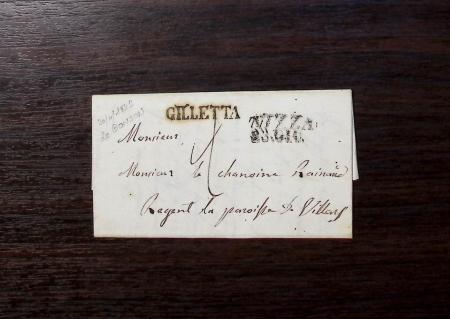 GILLETTA
NIZZA
23.GIU.
Monsieur
Monsieur le chanoine Rainaud
Regent la paroisse de Villars